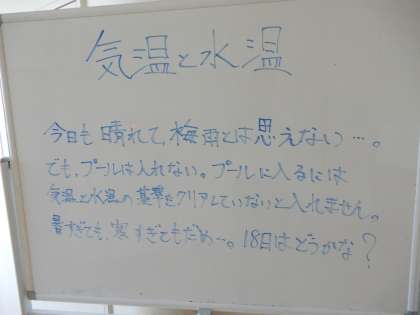 気温と水温
今日も晴れて、梅雨とは思えない…。
でも、プールは入れない。プールに入るには
気温と水温の基準をクリアしていないと入れません。
暑すぎても、寒すぎてもだめ…。18日はどうかな？